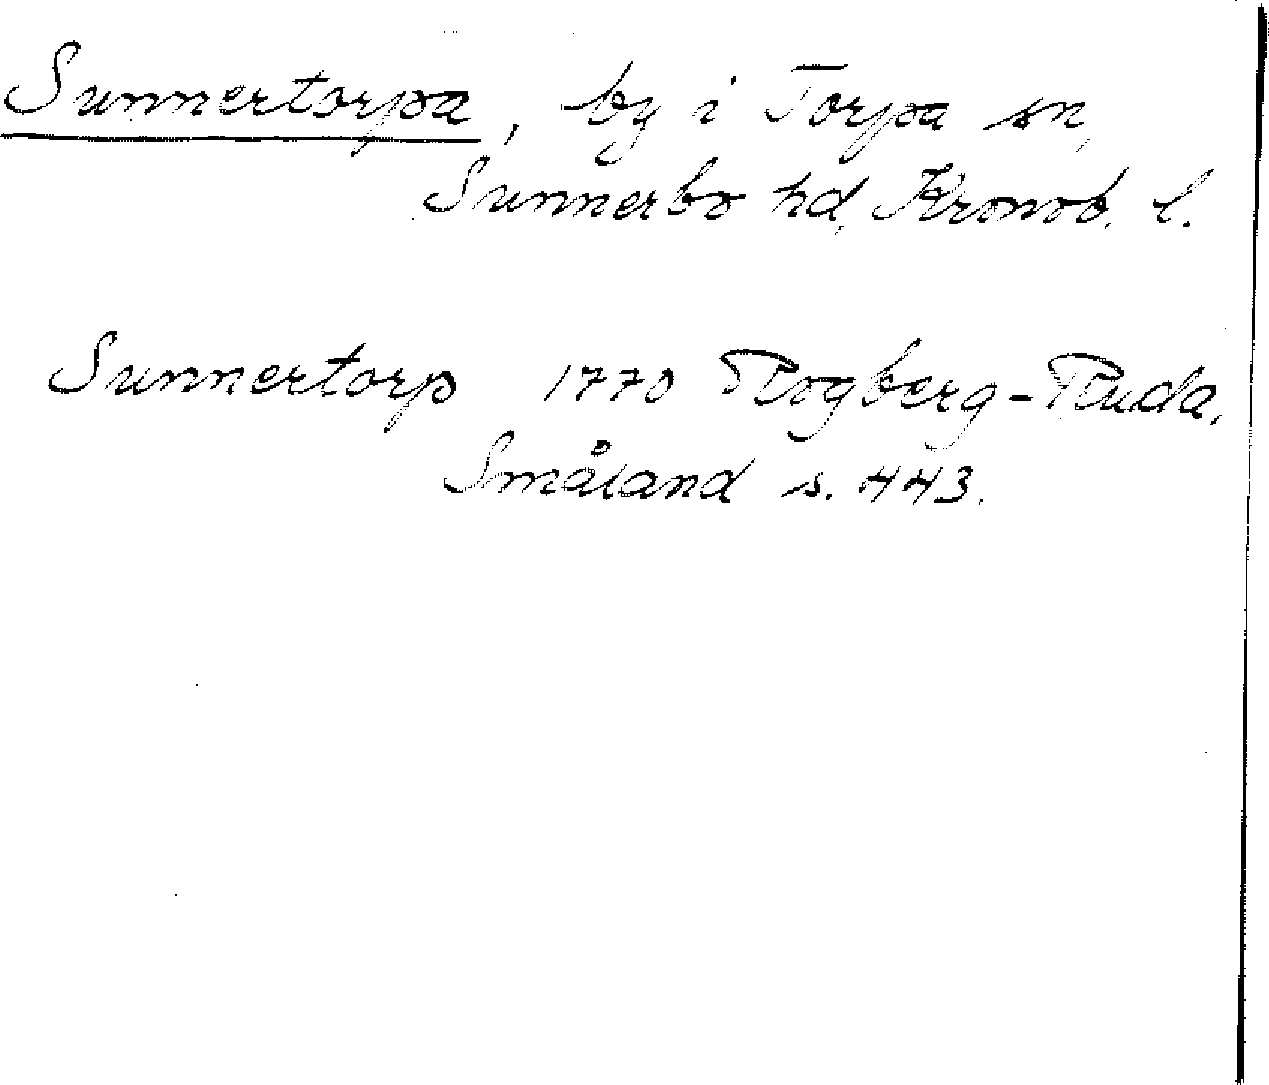 Sunnertorpa, by i Torpa sn,
Sunnerbo hd, Kronob. l.
Sunnertorp 1770 Rogberg-Ruda,
Småland s. 443.